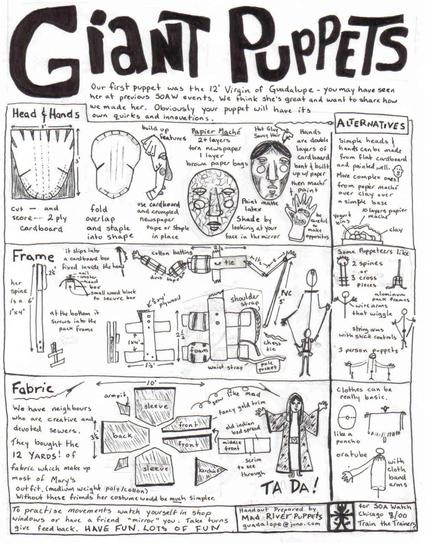 GIANT PUPPETS
Our first puppet was the 12' Virgin of Guadalupe - you may have seen
her at previous SOAW events. We think she's great and want to share how
we made her. Obviously your puppet will have its
own quirks and innovations.
Head & Hands
cut - and
score - 2 ply
cardboard
fold
overlap
and staple
into shape
build up
features
use cardboard
and crumpled
newspaper
tape or staple
in place
Papier Maché
2+ layers
torn newspaper
1 layer
brown paper bags
Paint matte
latex
Shade by
looking at your
face in the mirror
Hot Glue
Hands
are double
layers of
cardboard
bent & built
up w/ paper
then maché
Paint
be careful
to make
opposites
ALTERNATIVES
Simple heads &
hands can be made
from flat cardboard
and painted.
More complex ones
from papier maché
over clay over
a simple base
10 layers paper
maché
clay
Frame
her
spine
is a 6'
1"x4"
it slips into
a cardboard box
fixed inside the head
small wood block
to secure box
at the bottom it
screws into the
pack frame
cotton batting
duct tape
tie
plywood
1x4's
foam
shoulder
strap
waist strap
PVC
chest
tie
pole
pocket
Some Puppeteers like
2 spines
or
3 cross
pieces
aluminum
pack frames
wire arms
that wiggle
string arms
with stick controls
3 person puppets
Fabric
We have neighbours
who are creative and
devoted sewers.
They bought the
12 YARDS! of
fabric which make up
most of Mary's
outfit. (medium weight poly/cotton)
Without these friends her costume would be much simpler
10'
armpit
sleeve
back
front
front
sleeve
fancy gold trim
old indian
bed spread
middle
front
scrim to
see through
TA DA!
Clothes can be
really basic.
like a
poncho
or a tube
with cloth
band
arms
To practise movements watch yourself in shop
windows or have a friend "mirror" you. Take turns
give feed back. HAVE FUN. LOTS OF FUN
Handout Prepared by
Mad River Puppets
guadalope@juno.com
for SOA Watch
Chicago 8/00
Train the Trainers